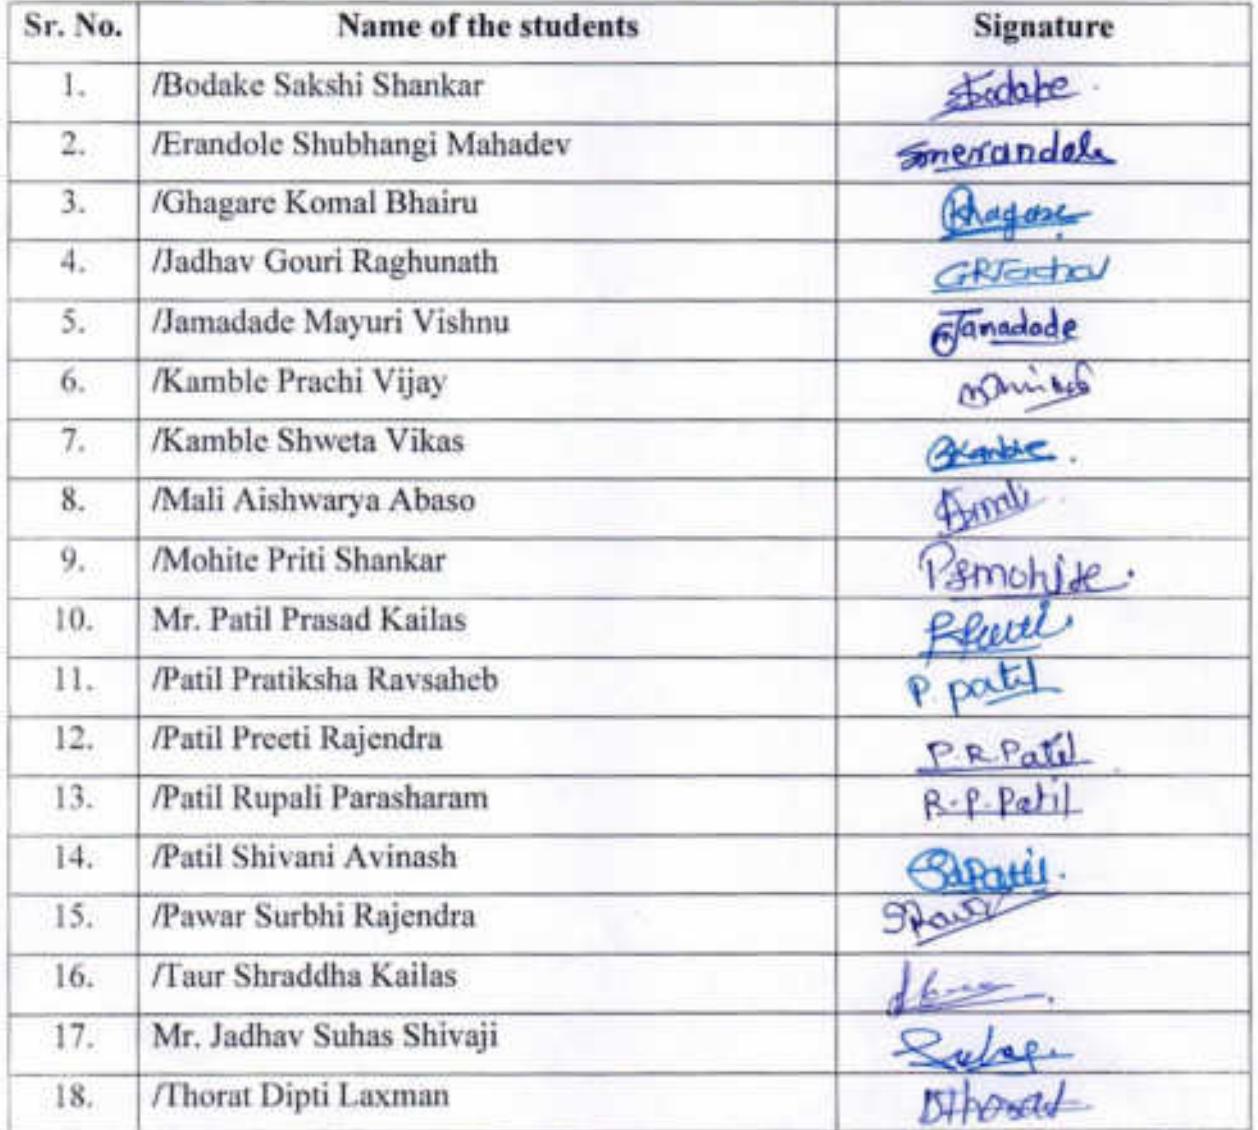 Sr. No. Name of the students Signature
1. /Bodake Sakshi Shankar SBodake.
2. /Erandole Shubhangi Mahadev smerandole
3. /Ghagare Komal Bhairu Khagare
4. /Jadhav Gouri Raghunath GRJadhav
5. /Jamadade Mayuri Vishnu Jamadade
6. /Kamble Prachi Vijay
7. /Kamble Shweta Vikas SKamble.
8. /Mali Aishwarya Abaso Amali
9. /Mohite Priti Shankar Psmohite.
10. Mr. Patil Prasad Kailas
11. /Patil Pratiksha Ravsaheb P. patil
12. /Patil Preeti Rajendra P.R.Patil
13. /Patil Rupali Parasharam R.P.Patil
14. /Patil Shivani Avinash SAPatil.
15. /Pawar Surbhi Rajendra
16. /Taur Shraddha Kailas
17. Mr. Jadhav Suhas Shivaji
18. /Thorat Dipti Laxman DThorat